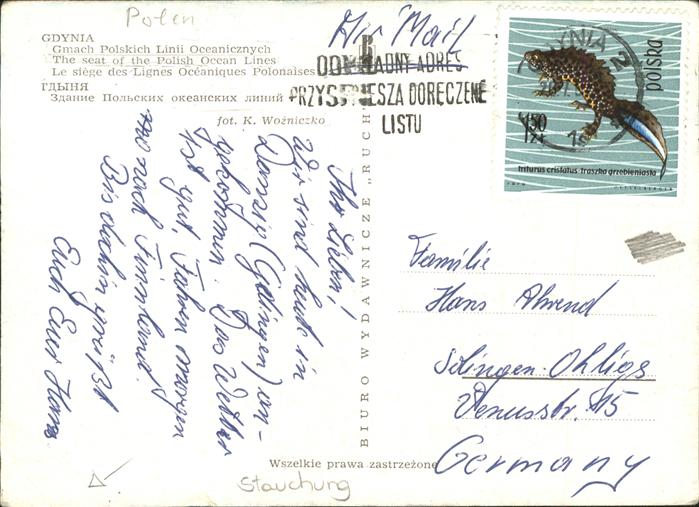 Polen
GDYNIA
Gmach Polskich Linii Oceanicznych
The seat of the Polish Ocean Lines
Le siège des Lignes Océaniques Polonaises
ГДЫНЯ
Здание Польских океанских линий
fot. K. Woźniczko
Air Mail
ADNY ADRES
PRZYSPIESZA DORĘCZENIE
LISTU
GDYNIA 2
polska
1,50
triturus cristatus·traszka grzebieniasta
Ihr Lieben!
Wir sind heute in
Danzig (Gdingen) an-
gekommen. Das Wetter
ist gut. Fahren morgen
nach Finnland.
Bis dahin grüßt
Euch Euer Hans
BIURO WYDAWNICZE „RUCH"
Familie
Hans Ahrend
Solingen-Ohligs
Venusstr. 15
Germany
Wszelkie prawa zastrzeżone
Stauchung